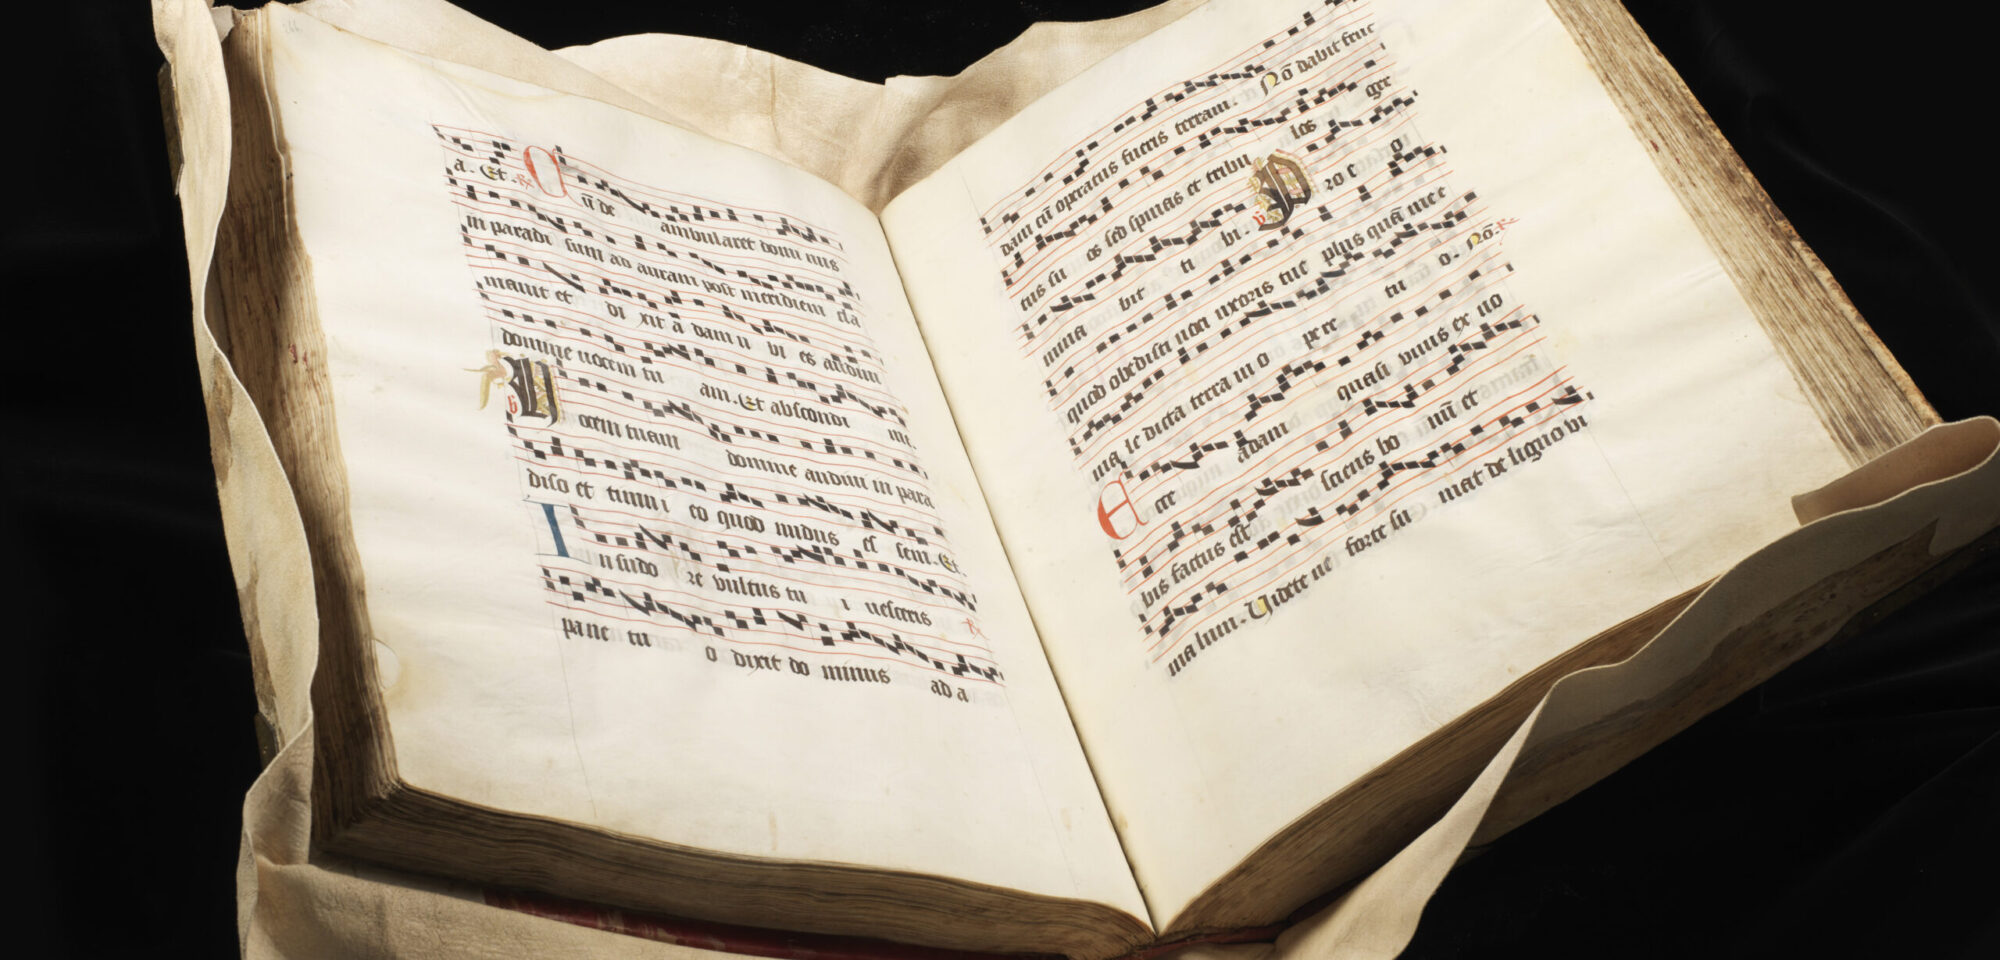 a. Et. R. Cū de ambularet domi nus
in paradi sum ad auram post meridiem cla
mavit et di xit a dam u bi es audivi
domine vocem tu am. Et abscondi me.
V Vocem tuam domine audivi in para
diso et timui eo quod nudus es sem. Et.
In sudo re vultus tu i vesceris R
pane tu o dixit do minus ad a
dam cū operatus fueris terram. Nō dabit fruc
tus su os sed spinas et tribu los ger
mina bit ti bi. V Pro e o
quod obedisti voci uxoris tue plus quā me e
ma le dicta terra in o pere tu o. Nō. R
Ecce adam quasi unus ex no
bis factus est sciens bo nū et
ma lum. Videte ne forte su mat de ligno vi